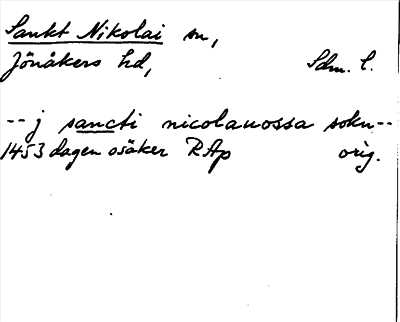 Sankt Nikolai sn,
Jönåkers hd, Sdm. l.
--j sancti nicolauossa sokn--
1453 dagen osäker RAp orig.